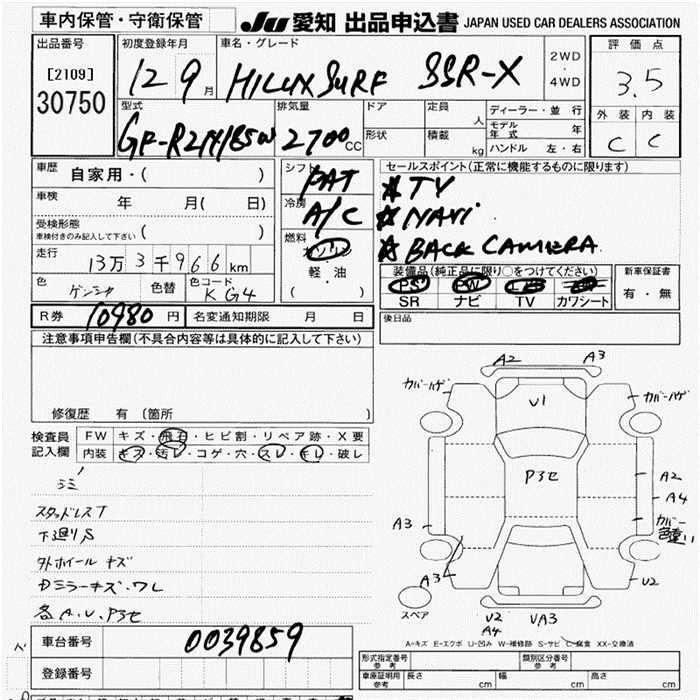 車内保管・守衛保管
JU 愛知 出品申込書 JAPAN USED CAR DEALERS ASSOCIATION
出品番号
[2109]
30750
初度登録年月
12 9 月
車名・グレード
HILUX SURF SSR-X
2WD
・
4WD
評価点
3.5
外装 内装
C C
型式
GF-RZN185W
排気量
2700 CC
ドア
形状
定員
人
積載
kg
ディーラー・並行
モデル年式 年
ハンドル 左・右
車歴
自家用・( )
車検
年 月( 日)
受検形態
車検付きのみ記入して下さい ( )
走行
13万3千966km
色
色替
色コード
KG4
シフト
FAT
冷房
A/C
燃料
ガソリン
軽油
( )
セールスポイント(正常に機能するものに限ります)
* TV
* NAVi
* BACK CAMERA
装備品(純正品に限り○をつけてください)
PS PW
SR ナビ TV カワシート
新車保証書
有・無
R券 10980 円
名変通知期限 月 日
後日品
注意事項申告欄(不具合内容等は具体的に記入して下さい)
修復歴 有(箇所 )
検査員
記入欄
FW キズ・飛石・ヒビ割・リペア跡・X要
内装 キズ・汚レ・コゲ・穴・スレ・キレ・破レ
スタッドレスT
下廻りS
外ホイールキズ
Dミラーキズ・ワレ
各A.U.Pヨセ
A2 A3
カバーハゲ
カバーハゲ
U1
Pヨセ
A2
A4
A3
カバー
色違い
A3
U2
スペア
U2
A4
UA3
A-キズ E-エクボ U-凹み W-補修跡 S-サビ C-腐食 XX-交換済
車台番号
0039859
登録番号
形式指定番号
参考
類別区分番号
参考
車庫証明用
参考
長さ cm 幅 cm 高さ cm